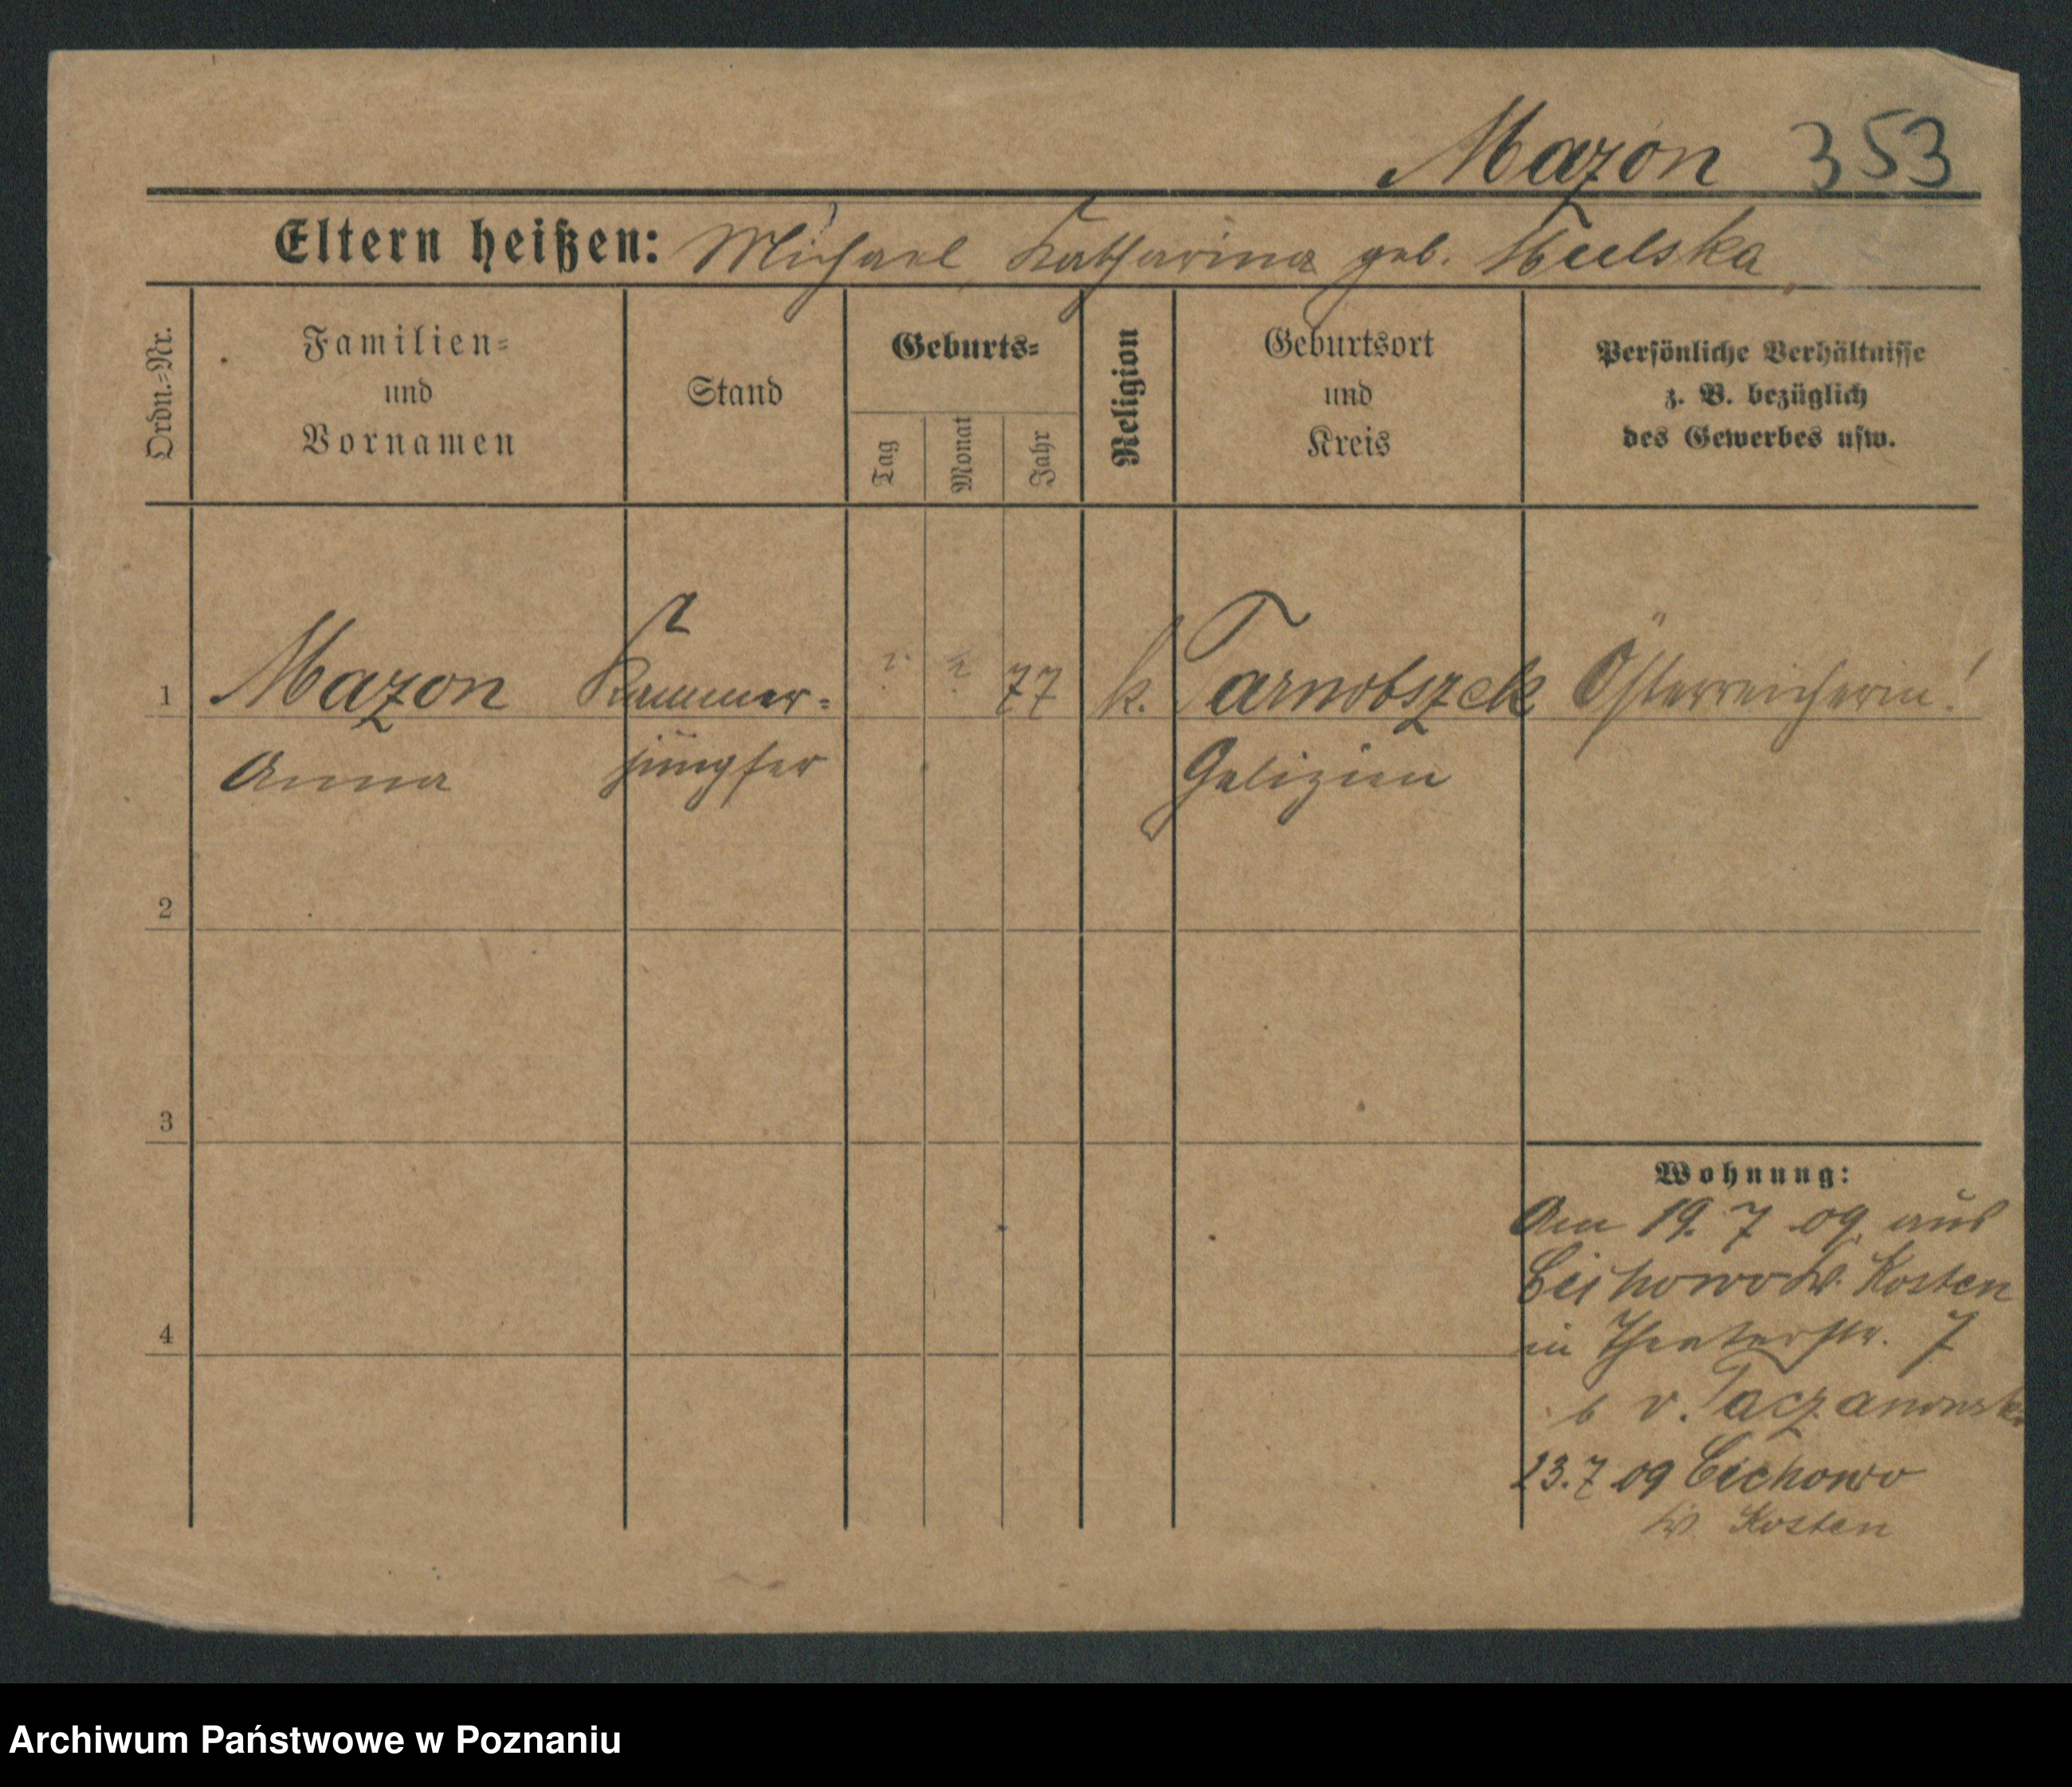 Mazón 353
Eltern heißen: Michael Katharina geb.
Ordn.=Nr.
Familien=
und
Vornamen
Stand
Geburts=
Tag
Monat
Jahr
Religion
Geburtsort
und
Kreis
Persönliche Verhältnisse
z. B. bezüglich
des Gewerbes usw.
1 Mazon Kammer= ? ? 77 k. Tarnobszek Österreicherin!
Anna jungfer Galizien
2
3
4
Wohnung:
Am 19. 7 09 aus
Cichowo Kr. Kosten
in Theaterstr. 7
b v. Taczanowski
23. 7 09 Cichowo
Kr. Kosten
Archiwum Państwowe w Poznaniu